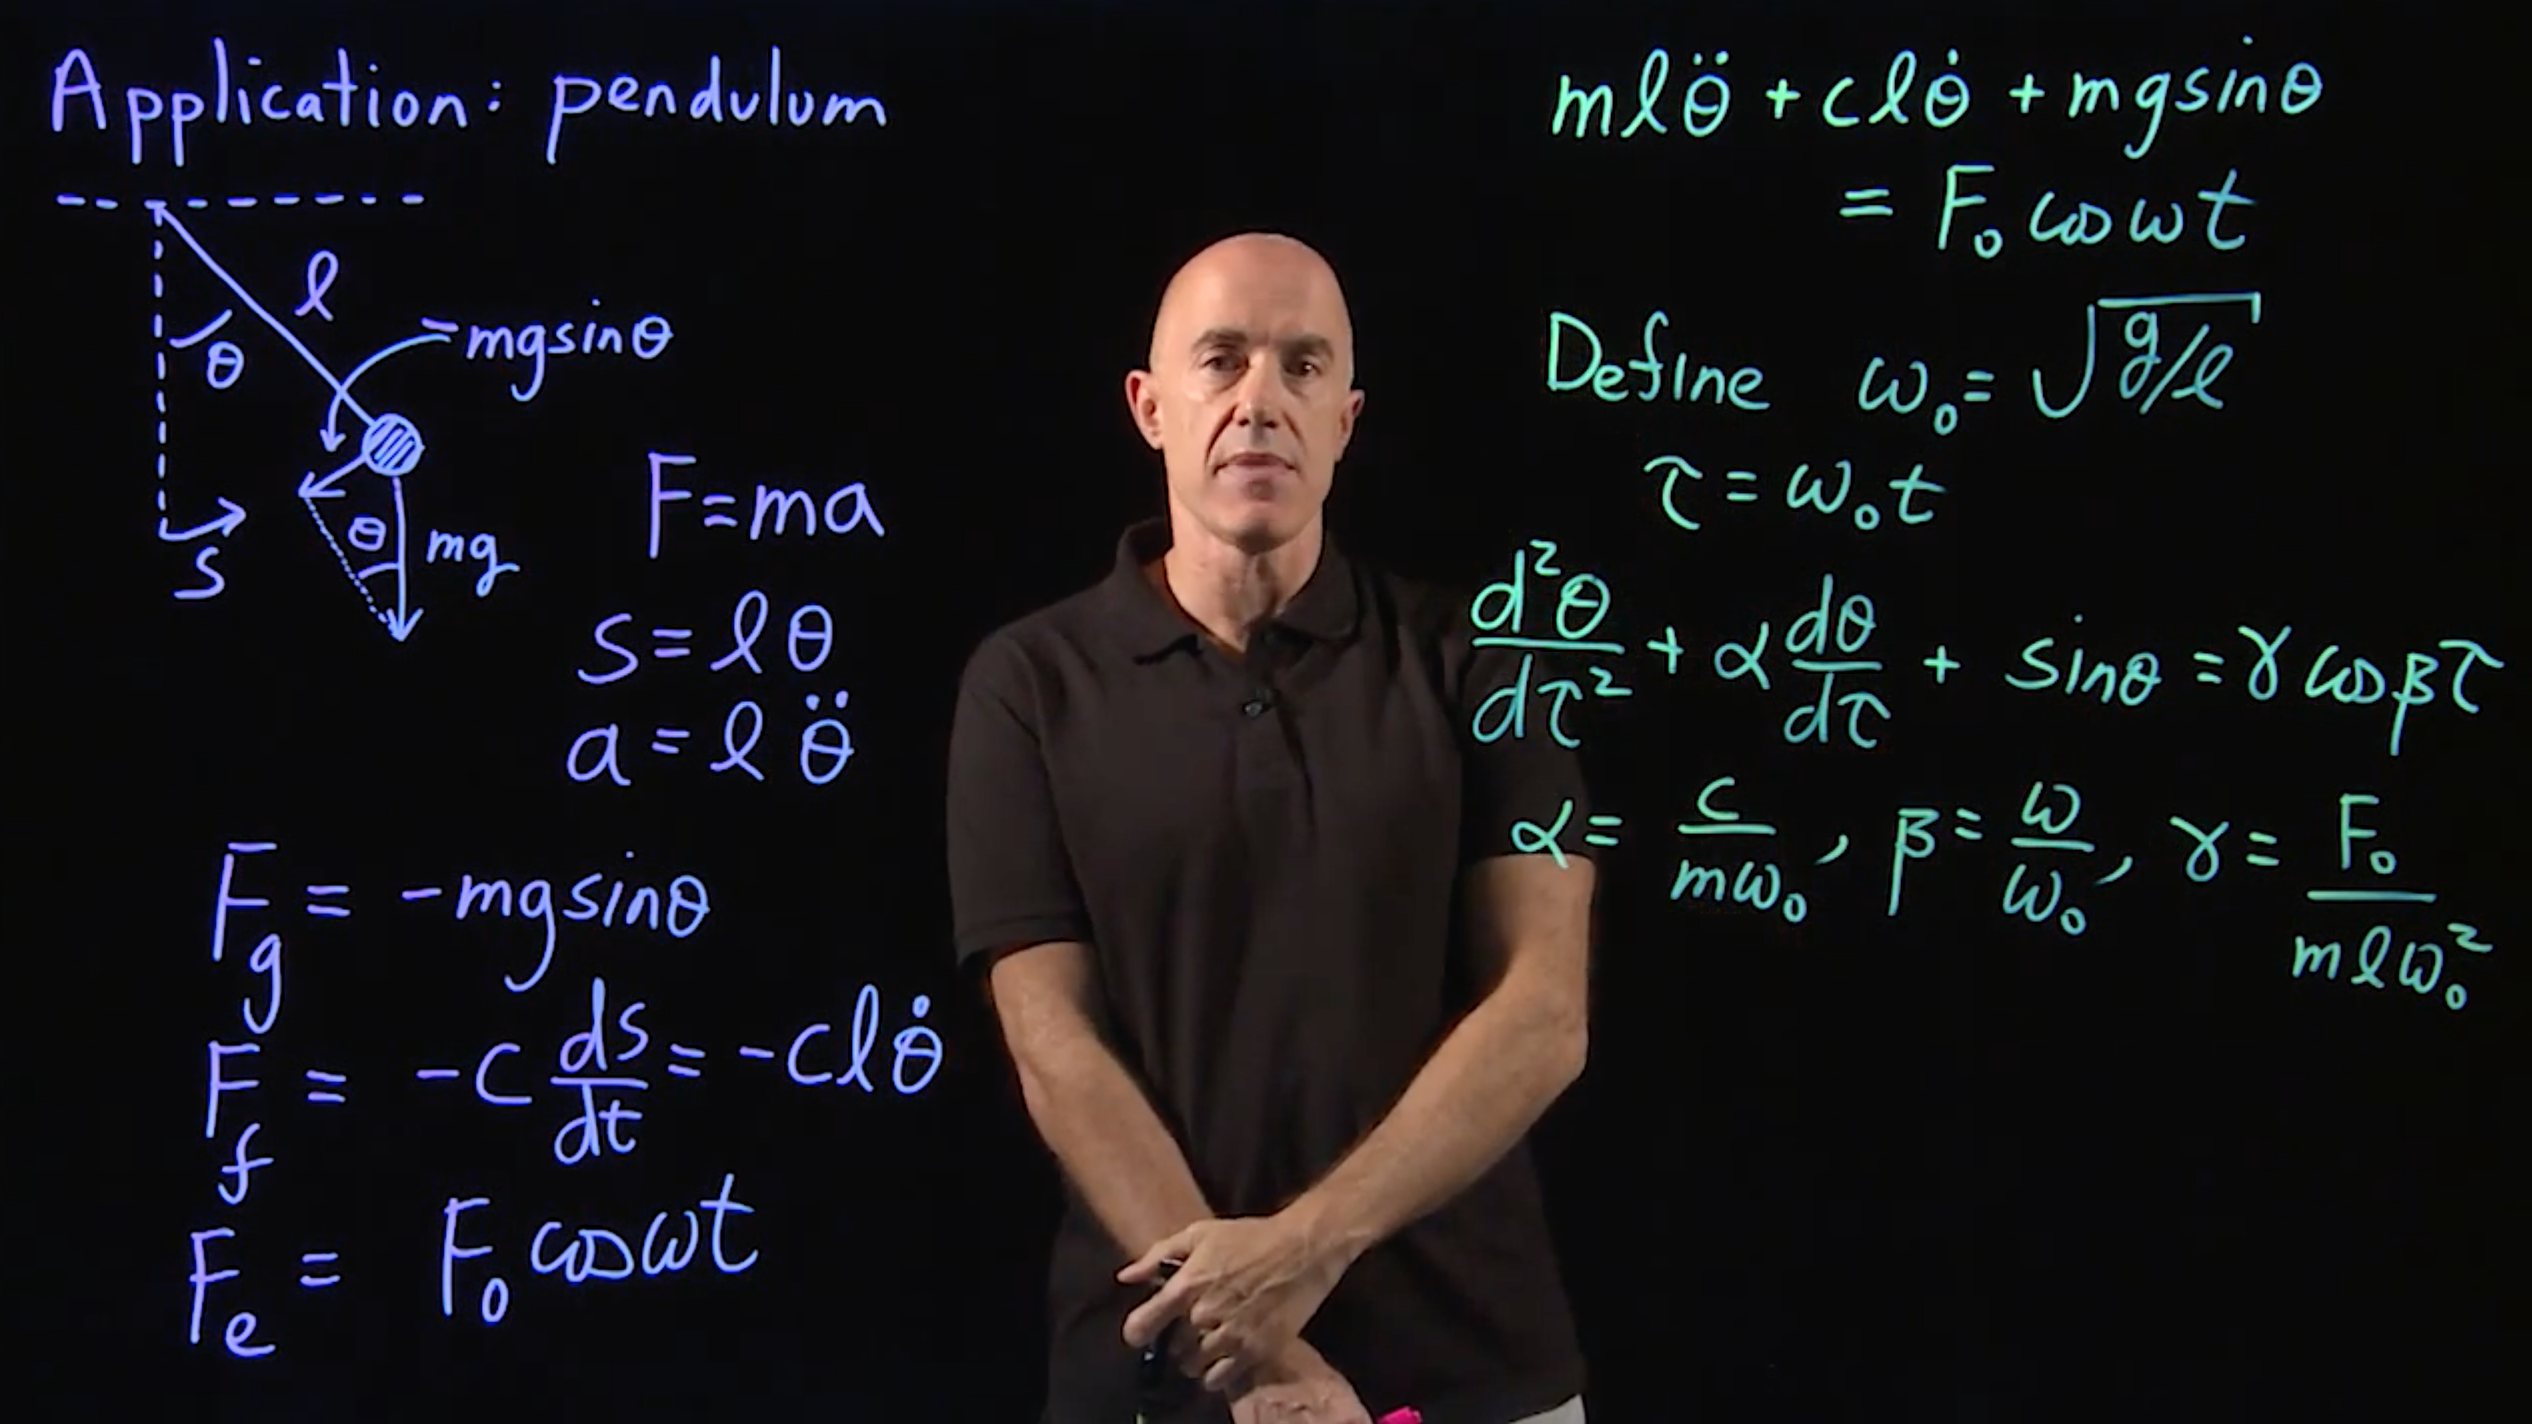 Application: pendulum
l
θ
=mgsinθ
θ
mg
s
F=ma
s=lθ
a=lθ̈
F_g = -mgsinθ
F_f = -c ds/dt = -clθ̇
F_e = F₀ cosωt
mlθ̈ + clθ̇ + mgsinθ
= F₀ cosωt
Define ω₀=√g/l
τ=ω₀t
d²θ/dτ² + α dθ/dτ + sinθ = γ cosβτ
α= c/mω₀, β= ω/ω₀, γ= F₀/mlω₀²